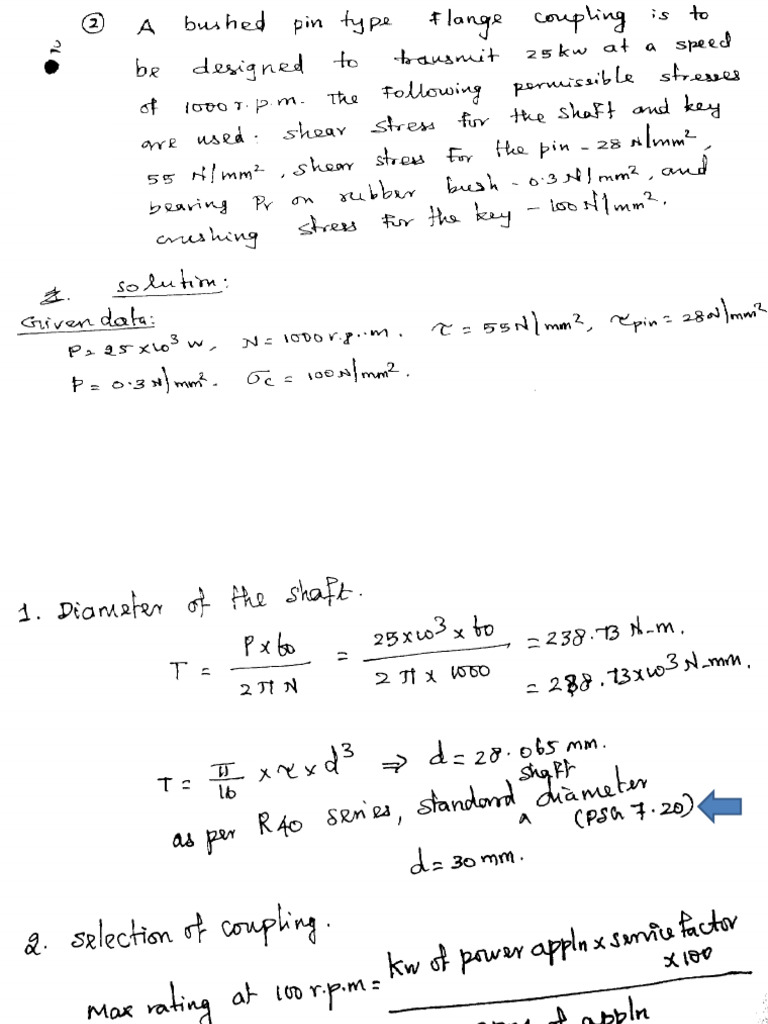 ② A bushed pin type flange coupling is to
be designed to transmit 25 kw at a speed
of 1000 r.p.m. The following permissible stresses
are used: shear stress for the shaft and key
55 N/mm², shear stress for the pin - 28 N/mm²,
bearing Pr on rubber bush - 0.3 N/mm², and
crushing stress for the key - 100 N/mm².
solution:
Given data:
P = 25 × 10³ w, N = 1000 r.p.m. τ = 55 N/mm², τpin = 28 N/mm²
P = 0.3 N/mm². σc = 100 N/mm².
1. Diameter of the shaft.
T = P × 60 / 2πN = 25×10³ × 60 / 2π × 1000 = 238.73 N-m.
= 238.73×10³ N-mm.
T = π/16 × τ × d³ ⇒ d = 28.065 mm.
as per R40 series, standard shaft diameter
(PSG 7.20)
d = 30 mm.
2. Selection of coupling.
Max rating at 100 r.p.m = kw of power appln × service factor × 100
of appln